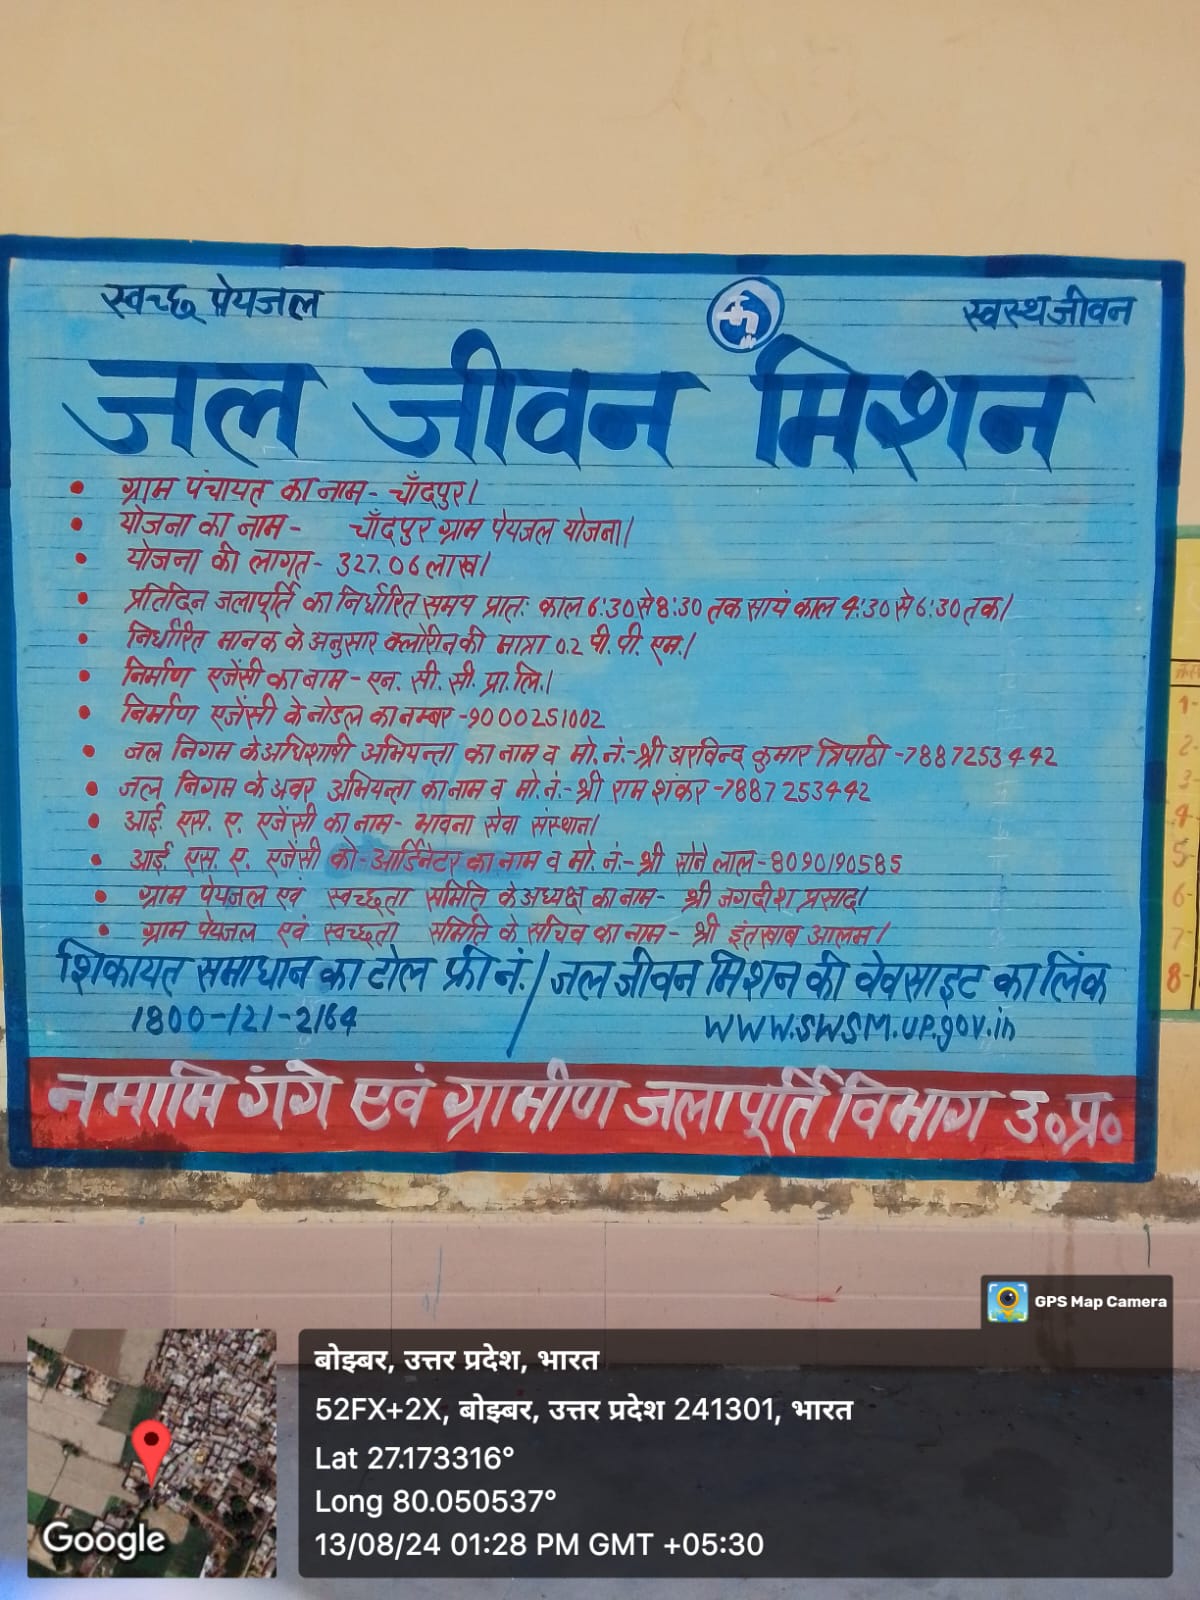 स्वच्छ पेयजल
स्वस्थ जीवन
जल जीवन मिशन
• ग्राम पंचायत का नाम- चाँदपुर।
• योजना का नाम- चाँदपुर ग्राम पेयजल योजना।
• योजना की लागत- 327.06 लाख।
• प्रतिदिन जलापूर्ति का निर्धारित समय प्रातः काल 6:30 से 8:30 तक सायं काल 4:30 से 6:30 तक।
• निर्धारित मानक के अनुसार क्लोरीन की मात्रा 0.2 पी. पी. एम.।
• निर्माण एजेंसी का नाम- एन. सी. सी. प्रा. लि.।
• निर्माण एजेंसी के नोडल का नम्बर -9000251002
• जल निगम के अधिशाषी अभियन्ता का नाम व मो. नं:- श्री अरविन्द कुमार त्रिपाठी -7887253442
• जल निगम के अवर अभियन्ता का नाम व मो. नं:- श्री राम शंकर -7887253442
• आई. एस. ए. एजेंसी का नाम- भावना सेवा संस्थान।
• आई एस. ए. एजेंसी को-आर्डिनेटर का नाम व मो. नं:- श्री सोने लाल - 8090190585
• ग्राम पेयजल एवं स्वच्छता समिति के अध्यक्ष का नाम- श्री जगदीश प्रसाद।
• ग्राम पेयजल एवं स्वच्छता समिति के सचिव का नाम- श्री इंतखाब आलम।
शिकायत समाधान का टोल फ्री नं. / जल जीवन मिशन की वेवसाइट का लिंक
1800-121-2164 www.swsm.up.gov.in
नमामि गंगे एवं ग्रामीण जलापूर्ति विभाग उ०प्र०
1-
2-
3-
4-
5-
6-
7-
8-
GPS Map Camera
बोझ्बर, उत्तर प्रदेश, भारत
52FX+2X, बोझ्बर, उत्तर प्रदेश 241301, भारत
Lat 27.173316°
Long 80.050537°
13/08/24 01:28 PM GMT +05:30
Google